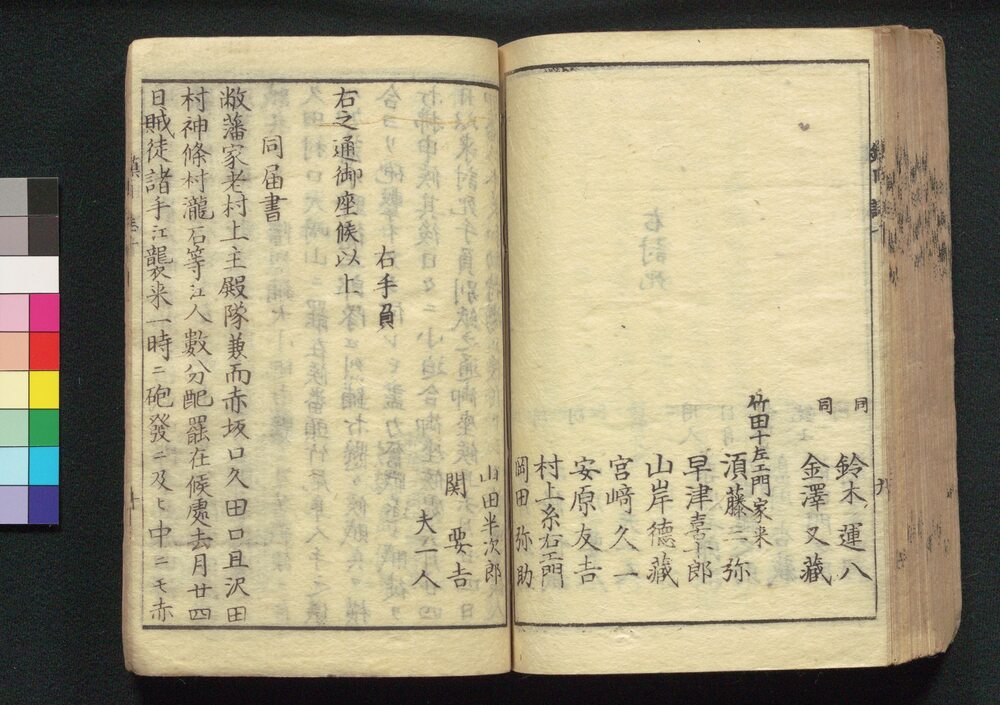 同 鈴木運八
同 金澤又藏
竹田十左エ門家来
須藤三弥
早津喜十郎
山岸德藏
宮﨑久一
安原友吉
村上糸右エ門
岡田弥助
山田半次郎
関 要吉
夫一人
右手負
右之通御座候以上
同届書
敝藩家老村上主殿隊兼而赤坂口久田口且沢田
村神條村瀧石等江人數分配罷在候處去月廿四
日賊徒諸手江襲来一時ニ砲發ニ及ヒ中ニモ赤